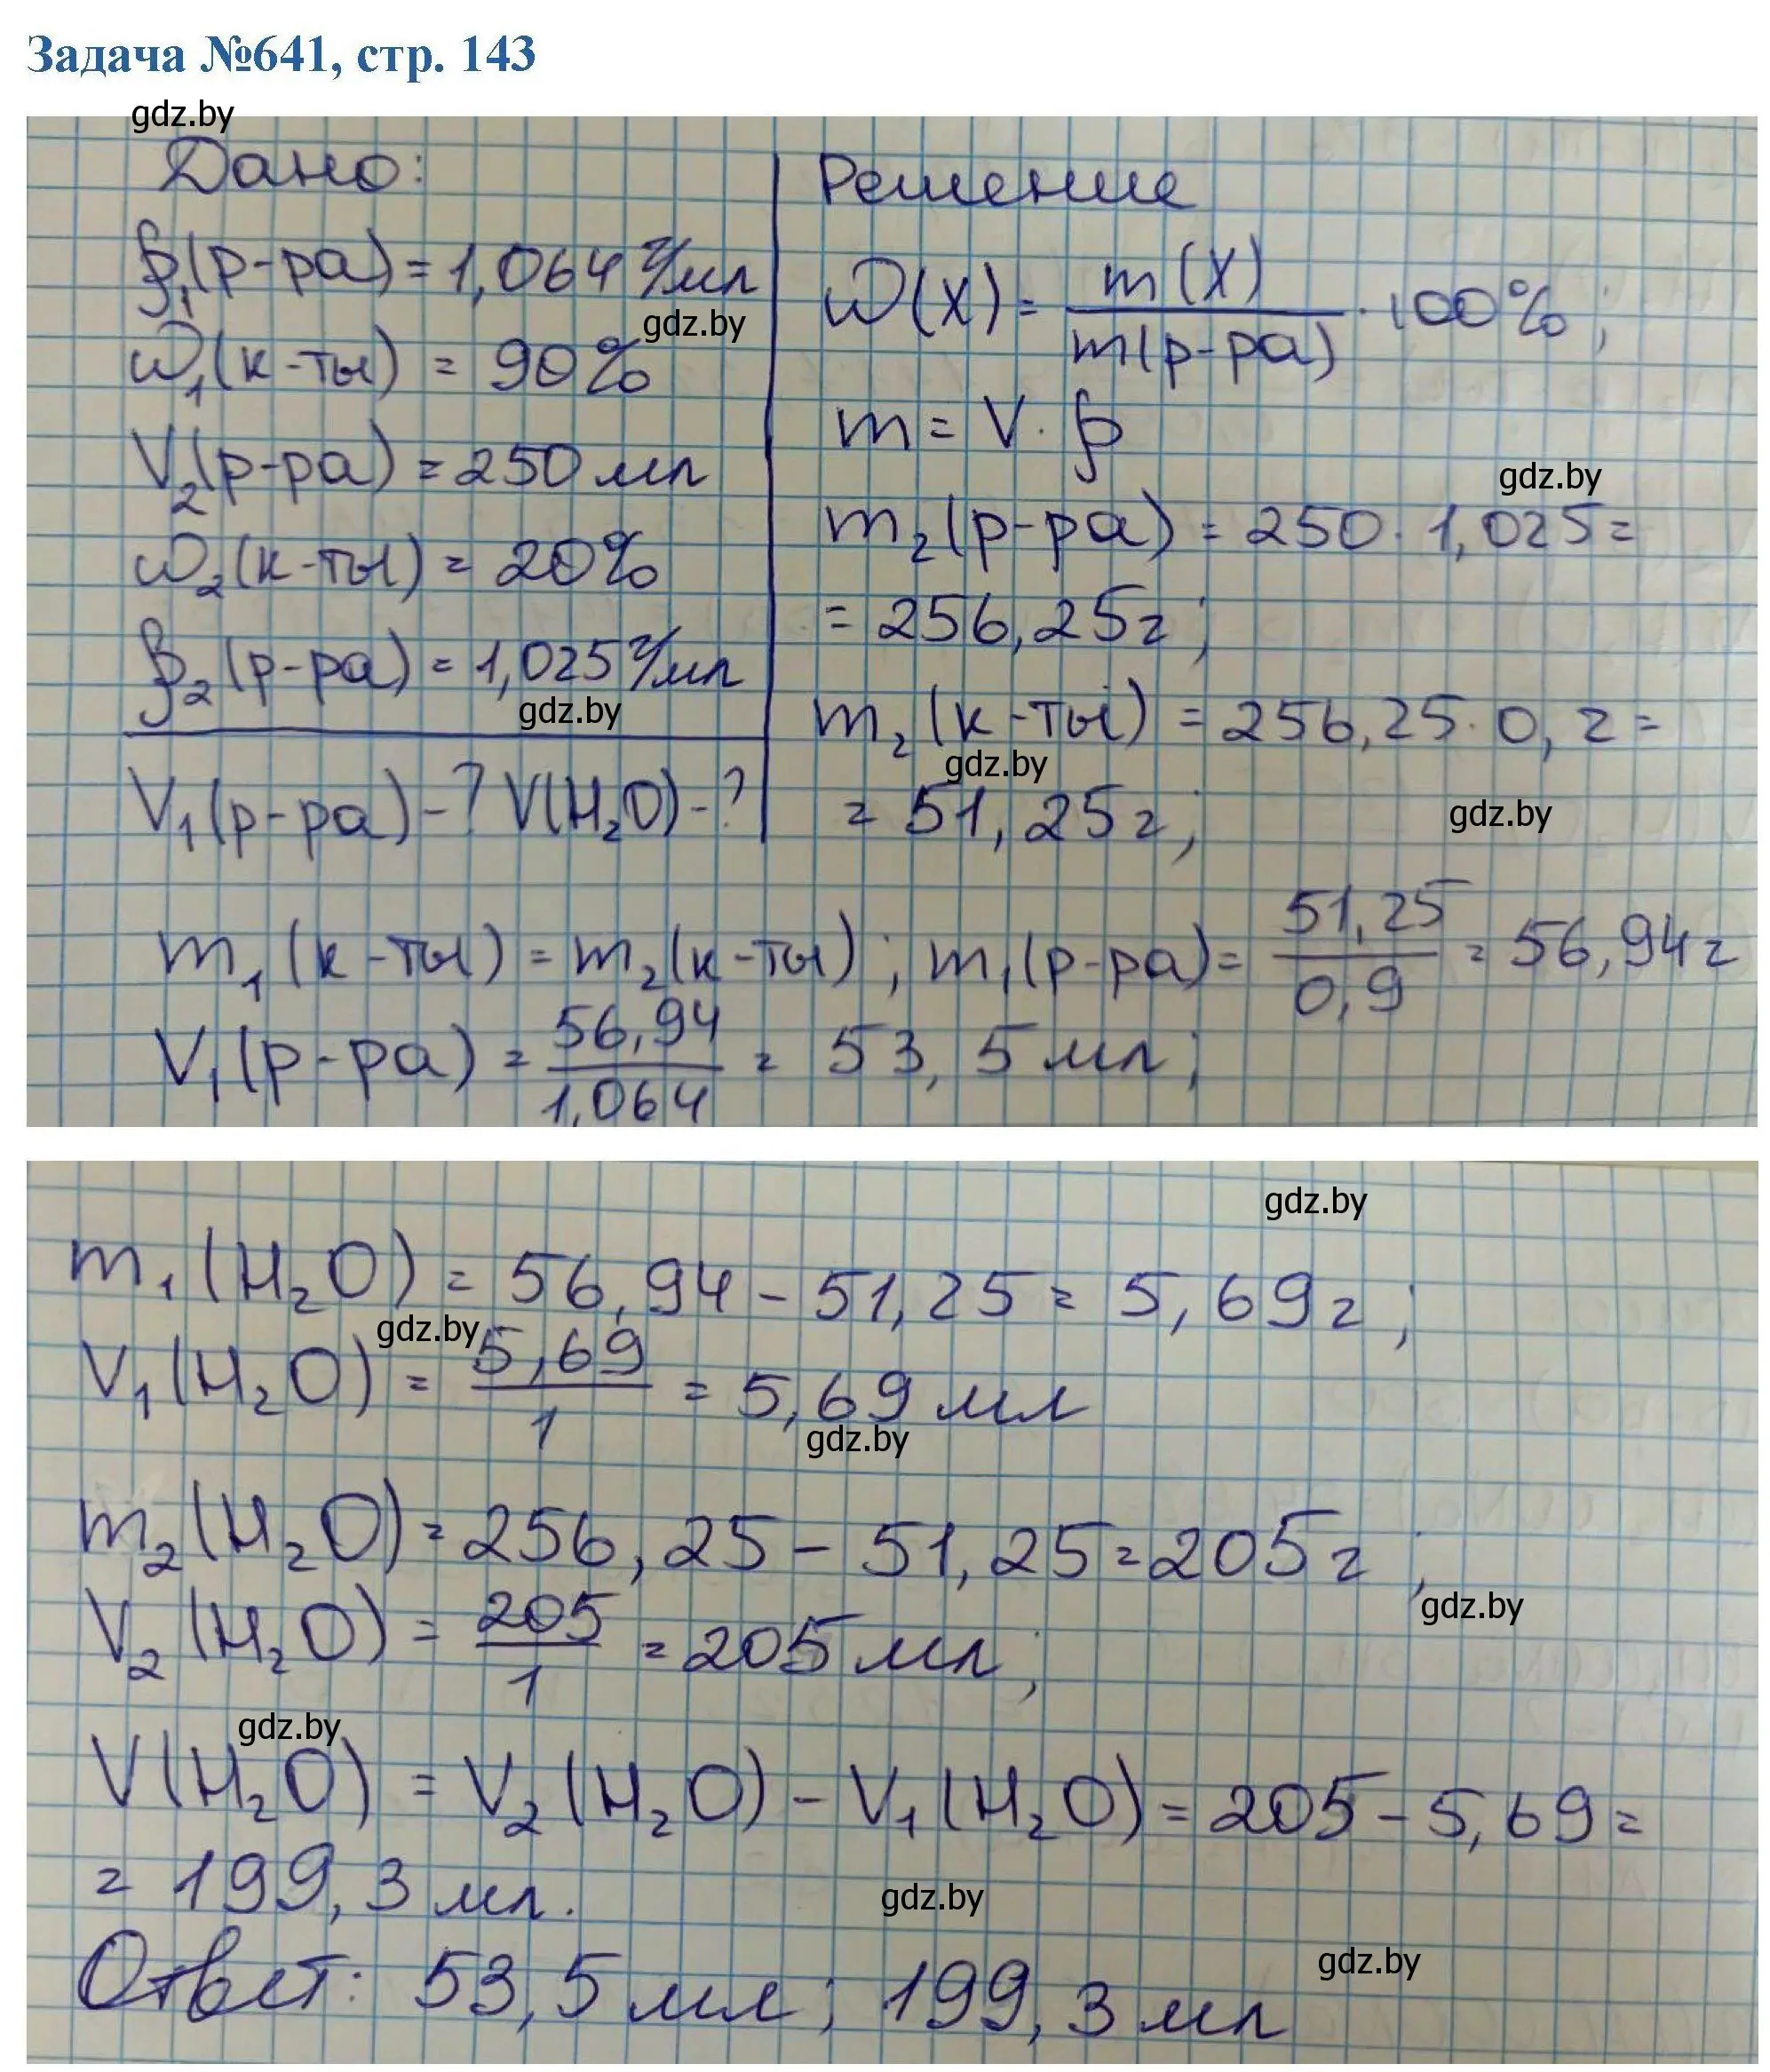 Задача №641, стр. 143
gdz.by
Дано:
ρ₁(р-ра) = 1,064 г/мл
gdz.by
ω₁(к-ты) = 90%
V₂(р-ра) = 250 мл
ω₂(к-ты) = 20%
ρ₂(р-ра) = 1,025 г/мл
gdz.by
V₁(р-ра) - ? V(H₂O) - ?
Решение
ω(X) = m(X)/m(р-ра) · 100%;
m = V · ρ
gdz.by
m₂(р-ра) = 250 · 1,025 =
= 256,25 г;
m₂(к-ты) = 256,25 · 0,2 =
gdz.by
= 51,25 г;
gdz.by
m₁(к-ты) = m₂(к-ты); m₁(р-ра) = 51,25/0,9 = 56,94 г
V₁(р-ра) = 56,94/1,064 = 53,5 мл;
gdz.by
m₁(H₂O) = 56,94 - 51,25 = 5,69 г;
gdz.by
V₁(H₂O) = 5,69/1 = 5,69 мл
gdz.by
m₂(H₂O) = 256,25 - 51,25 = 205 г;
gdz.by
V₂(H₂O) = 205/1 = 205 мл;
gdz.by
V(H₂O) = V₂(H₂O) - V₁(H₂O) = 205 - 5,69 =
= 199,3 мл.
gdz.by
gdz.by
Ответ: 53,5 мл; 199,3 мл